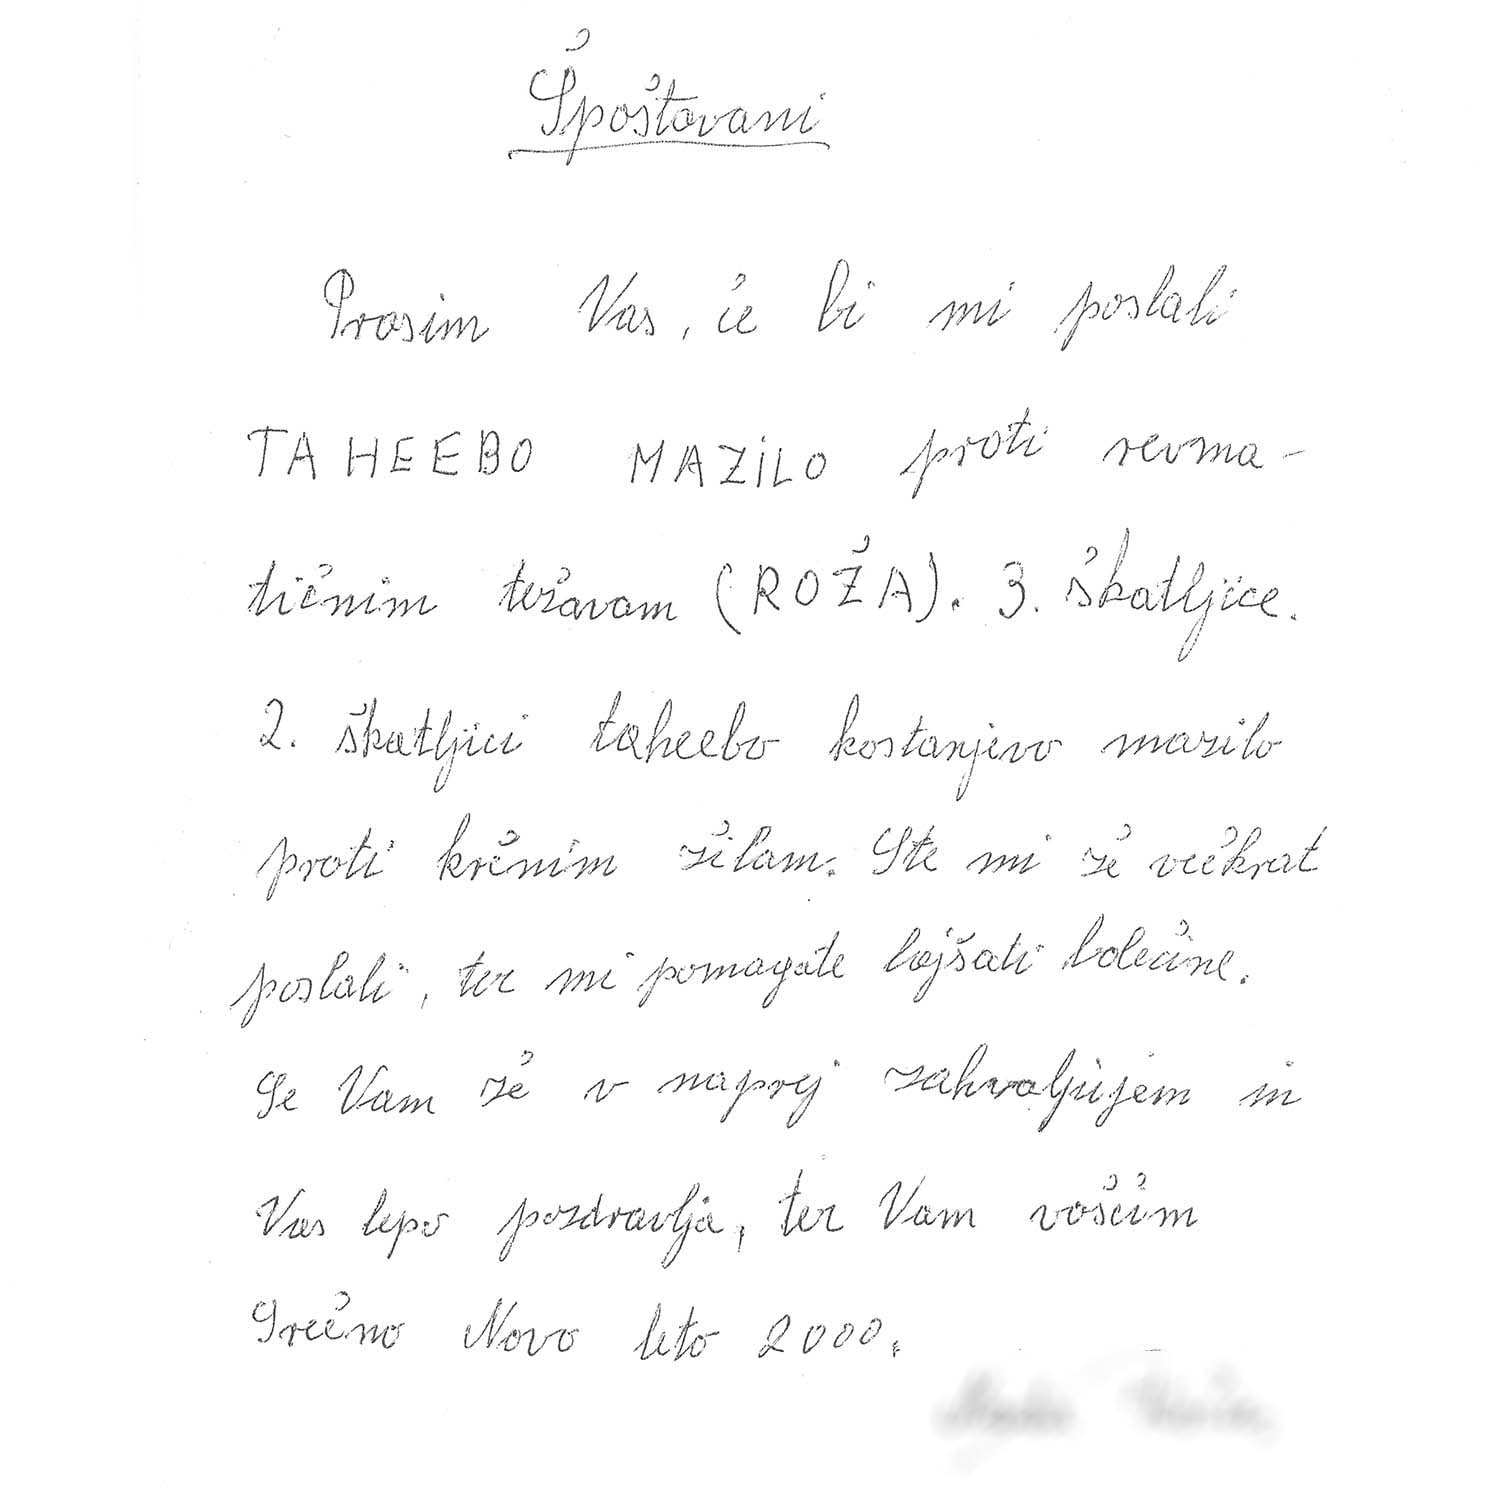 Špoštovani
Prosim Vas, če bi mi poslali
TAHEEBO MAZiLO proti revma-
tičnim težavam (ROŽA). 3. škatljice.
2. škatljici taheebo kostanjevo mazilo
proti krčnim žilam. Ste mi že večkrat
poslali, ter mi pomagate lajšati bolečine.
Se Vam že v naprej zahvaljujem in
Vas lepo pozdravlja, ter Vam voščim
Srečno Novo leto 2000.